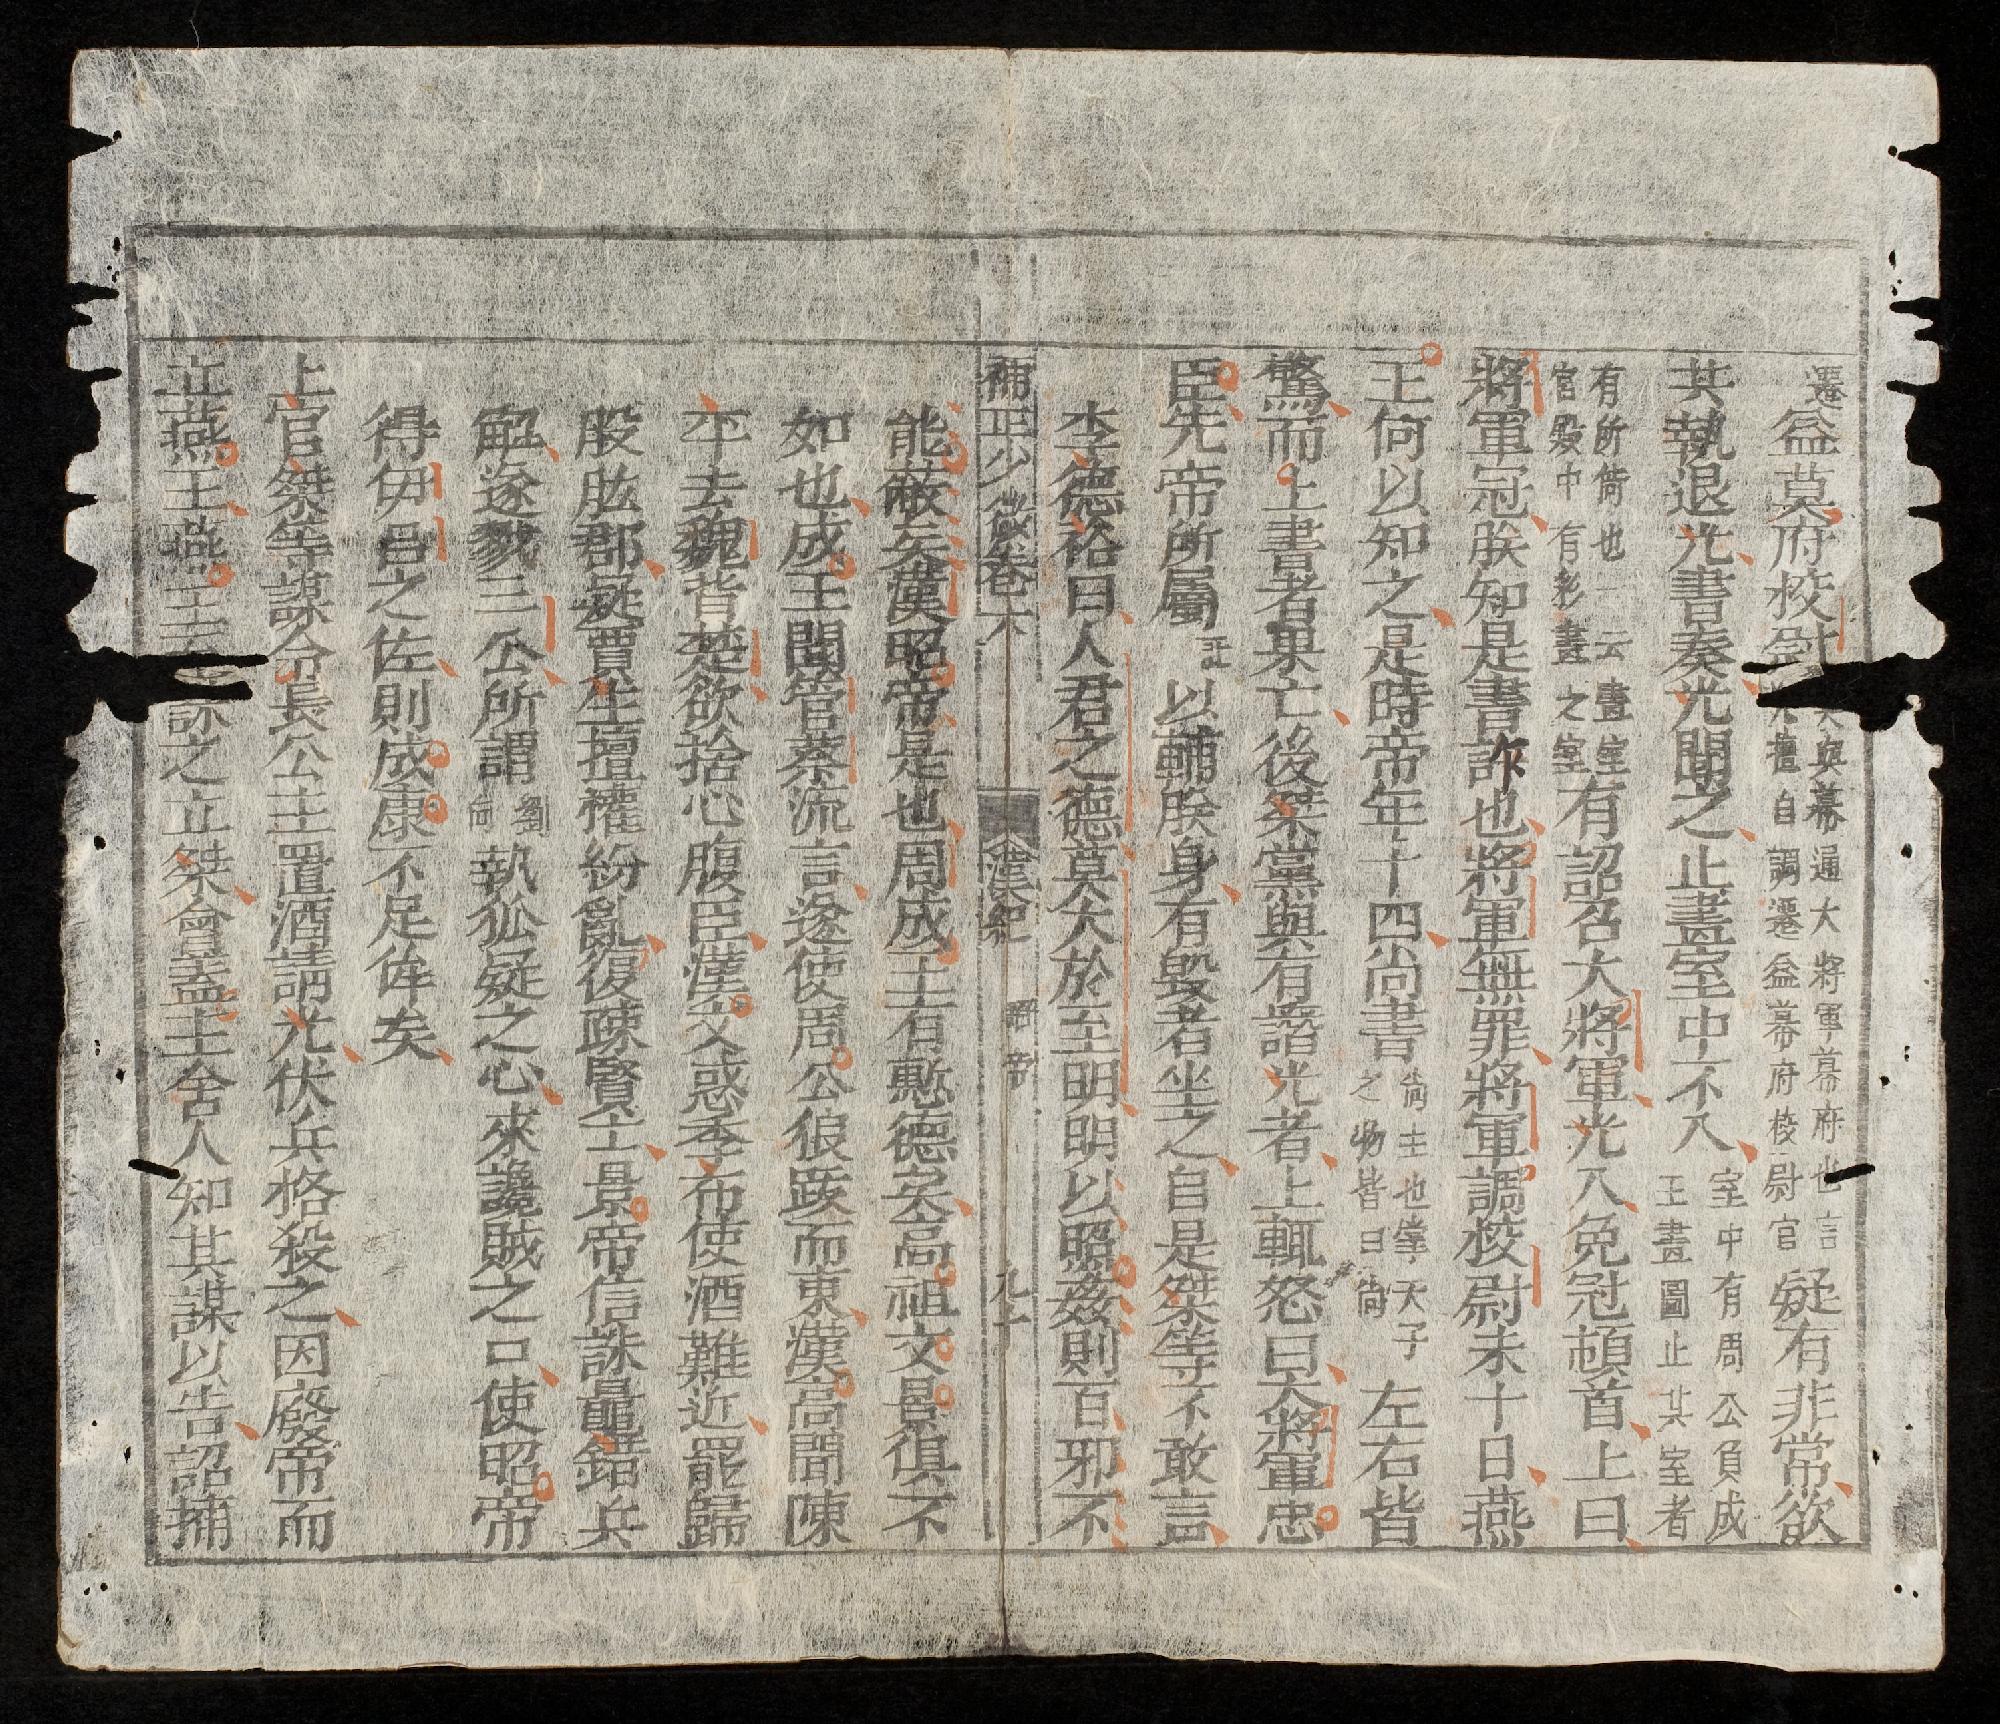 遷益莫府校尉
與幕通大將軍幕府也言
光擅自調遷益幕府校尉官
疑有非常欲
其執退光書奏光聞之止畫室中不入
室中有周公負成
王畫圖止其室者
有所也一云畫室
官殿中有彩畫之室
有詔召大將軍光入免冠頓首上曰
將軍冠朕知是書詐也將軍無罪將軍調校尉未十日燕
王何以知之是時帝年十四尚書
尚主也掌天子
之物皆曰尚
左右皆
驚而上書者果亡後桀黨與有譖光者上輒怒曰大將軍忠
臣先帝所屬以輔朕身有毁者坐之自是桀等不敢言
李德裕曰人君之德莫大於至明明以照姦則百邪不
補正少微卷六 漢紀 昭帝 九十
能蔽矣漢昭帝是也周成王有慙德矣高祖文景俱不
如也成王聞管蔡流言遂使周公狼跋而東漢高聞陳
平去魏背楚欲捨心腹臣漢文惑季布使酒難近罷歸
股肱郡疑賈生擅權紛亂復疎賢士景帝信誅鼂錯兵
解遂戮三公所謂
劉
向
執狐疑之心來讒賊之口使昭帝
得伊呂之佐則成康不足侔矣
上官桀等謀令長公主置酒請光伏兵格殺之因廢帝而
立燕王燕王誅之立桀會蓋主舍人知其謀以告詔捕